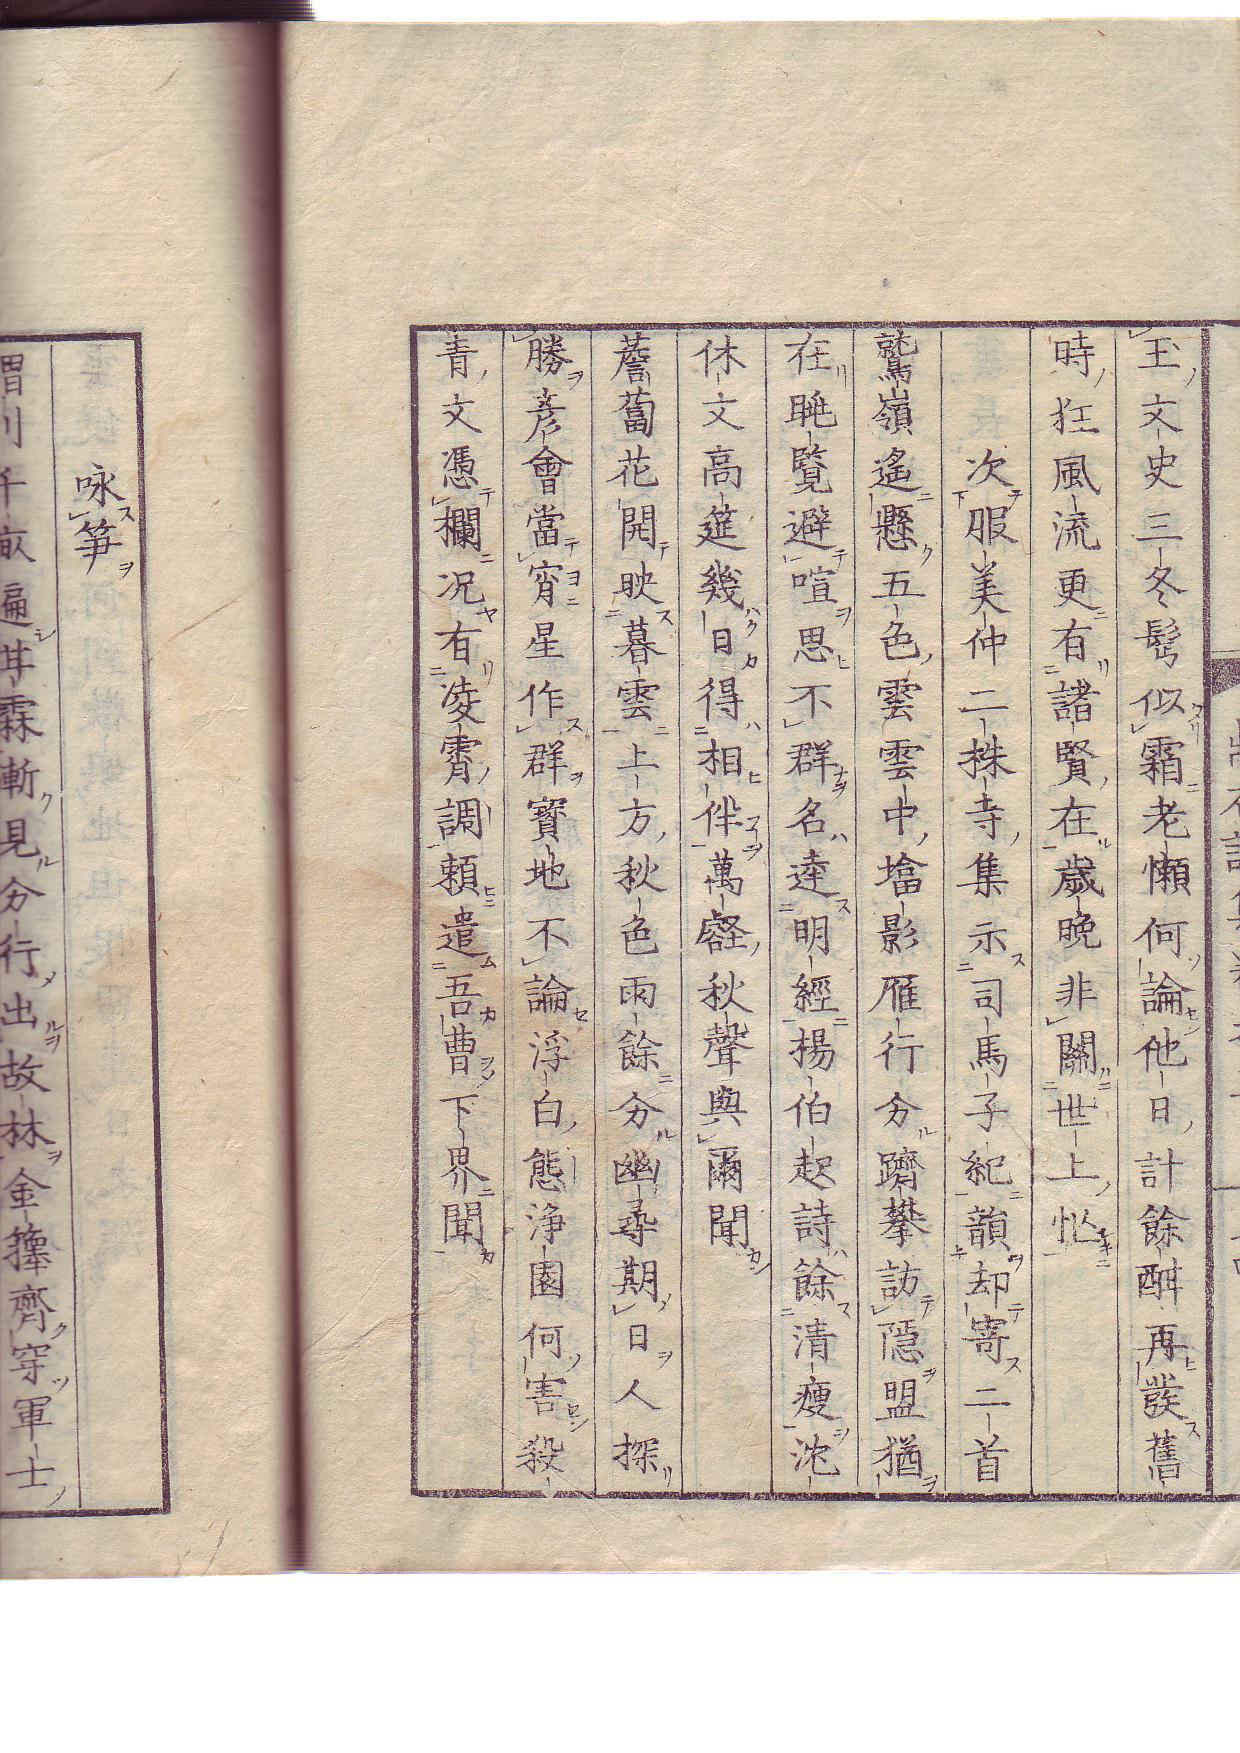 玉文史三冬髩似霜老懶何論他日計餘酣再發舊
時狂風流更有諸賢在歲晚非關世上忙
次服美仲二株寺集示司馬子紀韻却寄二首
鷲嶺遙懸五色雲雲中塔影雁行分躋攀訪隱盟猶
在眺覽避喧思不群名達明經楊伯起詩餘清瘦沈
休文高筵幾日得相伴萬壑秋聲與爾聞
薝蔔花開映暮雲上方秋色雨餘分幽尋期日人探
勝彦會當宵星作群寳地不論浮白態浄園何害殺
青文憑欄况有凌霄調頼遣吾曹下界聞
咏笋
渭川千畝遍甘霖漸見分行出故林金籜齊穿軍士